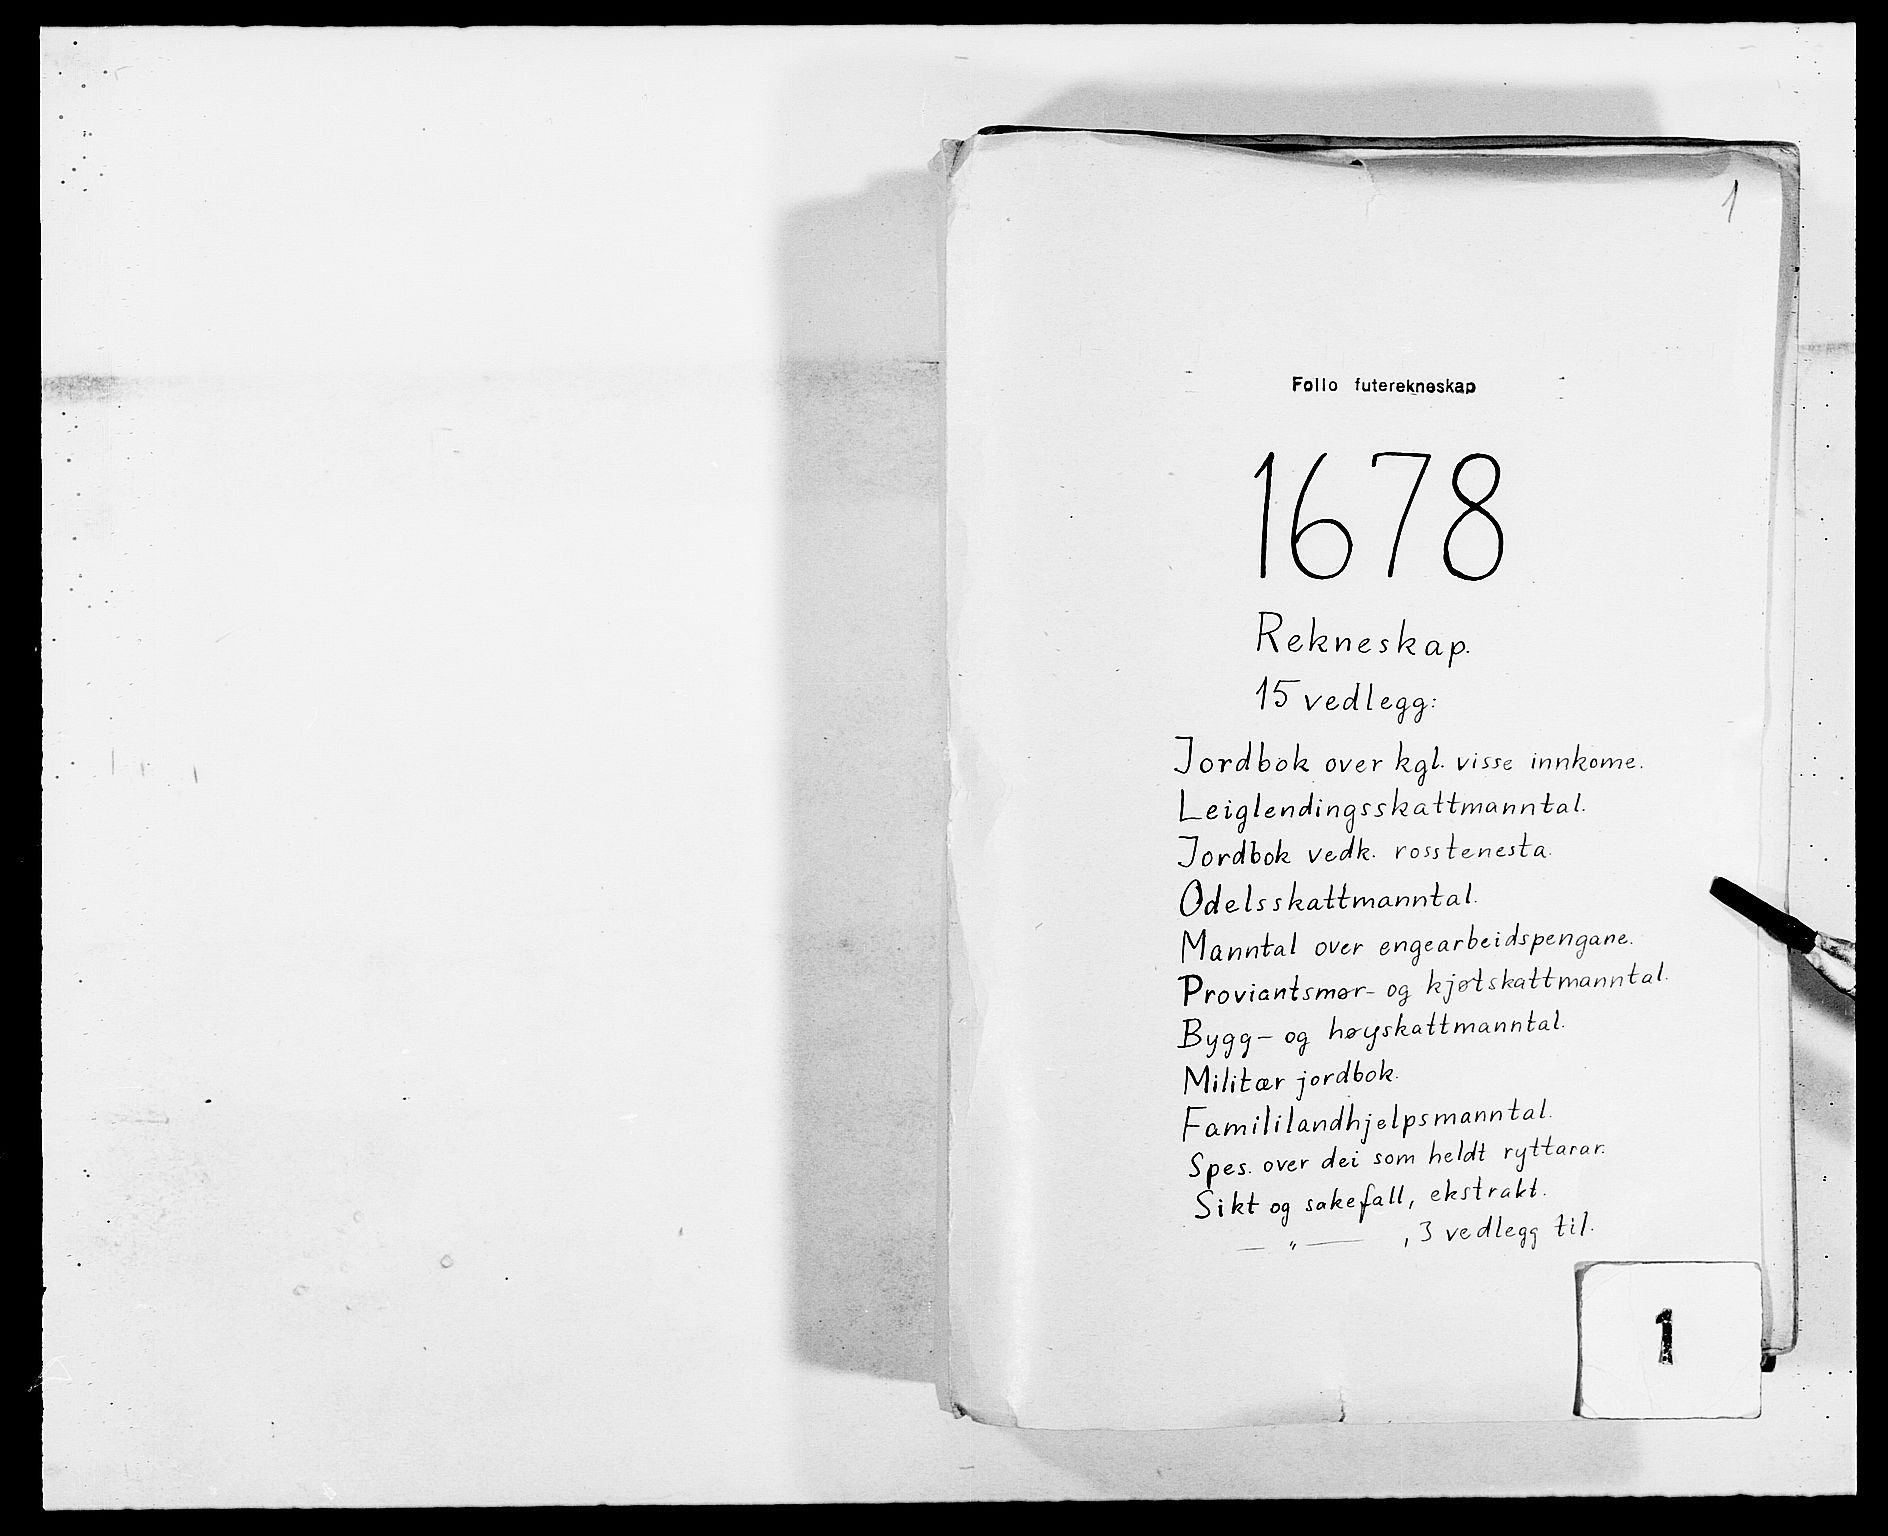 1
Follo futerekneskap
1678
Rekneskap.
15 vedlegg:
Jordbok over kgl. visse innkome.
Leiglendingsskattmanntal.
Jordbok vedk. rosstenesta.
Odelsskattmanntal.
Manntal over engearbeidspengane.
Proviantsmør- og kjøtskattmanntal.
Bygg- og høyskattmanntal.
Militær jordbok.
Famililandhjelpsmanntal.
Spes. over dei som heldt ryttarar.
Sikt og sakefall, ekstrakt.
— „ — , 3 vedlegg til.
1